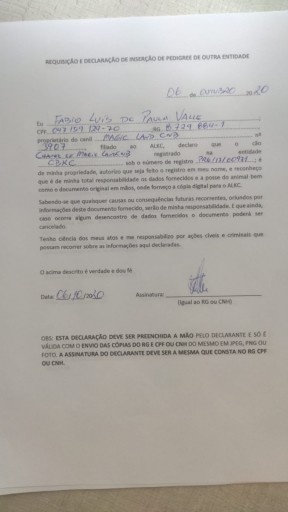 REQUISIÇÃO E DECLARAÇÃO DE INSERÇÃO DE PEDIGREE DE OUTRA ENTIDADE
06 de OUTUBRO 2020
Eu FABIO LUIS DE PAULA VALLE
CPF RG
proprietário do canil MAGIC nº
3907, filiado ao ALKC, declaro que o cão
registrado na entidade
CBKC, sob o número de registro e
de minha propriedade, autorizo que seja feito o registro em meu nome, e reconheço
que é de minha total responsabilidade os dados fornecidos e a posse do animal bem
como o documento original em mãos, onde forneço a cópia digital para o ALKC.
Sabendo-se que quaisquer causas ou consequências futuras recorrentes, oriundos por
informações deste documento fornecido, serão de minha responsabilidade. E que ainda,
caso ocorra algum desencontro de dados fornecidos o documento poderá ser
cancelado.
Tenho ciência dos meus atos e me responsabilizo por ações cíveis e criminais que
possam recorrer sobre as informações aqui declaradas.
O acima descrito é verdade e dou fé.
Data: 06/10/2020 Assinatura:
(Igual ao RG ou CNH).
OBS: ESTA DECLARAÇÃO DEVE SER PREENCHIDA A MÃO PELO DECLARANTE E SÓ É
VÁLIDA COM O ENVIO DAS CÓPIAS DO RG E CPF OU CNH DO MESMO EM JPEG, PNG OU
FOTO. A ASSINATURA DO DECLARANTE DEVE SER A MESMA QUE CONSTA NO RG CPF
OU CNH.